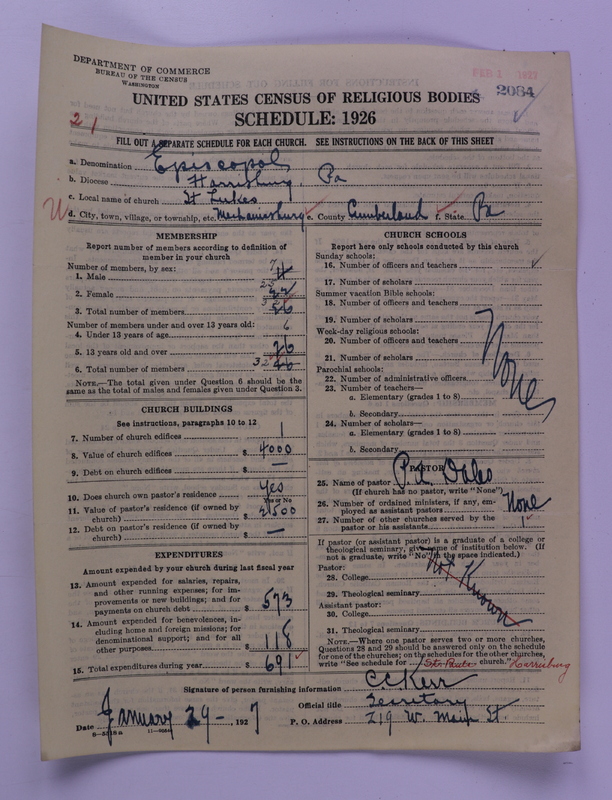 DEPARTMENT OF COMMERCE
BUREAU OF THE CENSUS
WASHINGTON
FEB 1 1927
2084
UNITED STATES CENSUS OF RELIGIOUS BODIES
SCHEDULE: 1926
21
FILL OUT A SEPARATE SCHEDULE FOR EACH CHURCH. SEE INSTRUCTIONS ON THE BACK OF THIS SHEET
a. Denomination Episcopal
b. Diocese Harrisburg, Pa
c. Local name of church St Lukes
d. City, town, village, or township, etc. Mechanicsburg e. County Cumberland f. State Pa
MEMBERSHIP
Report number of members according to definition of member in your church
Number of members, by sex:
1. Male 7
2. Female 25
3. Total number of members
Number of members under and over 13 years old:
4. Under 13 years of age 6
5. 13 years old and over 26
6. Total number of members 32
NOTE.—The total given under Question 6 should be the
same as the total of males and females given under Question 3.
CHURCH BUILDINGS
See instructions, paragraphs 10 to 12
7. Number of church edifices 1
8. Value of church edifices $ 4000
9. Debt on church edifices $ —
10. Does church own pastor's residence Yes
Yes or No
11. Value of pastor's residence (if owned by
church) $ 2500
12. Debt on pastor's residence (if owned by
church) $ —
EXPENDITURES
Amount expended by your church during last fiscal year
13. Amount expended for salaries, repairs,
and other running expenses; for im-
provements or new buildings; and for
payments on church debt $ 573
14. Amount expended for benevolences, in-
cluding home and foreign missions; for
denominational support; and for all
other purposes $ 118
15. Total expenditures during year $ 691
CHURCH SCHOOLS
Report here only schools conducted by this church
Sunday schools:
16. Number of officers and teachers
17. Number of scholars
Summer vacation Bible schools:
18. Number of officers and teachers
19. Number of scholars
Week-day religious schools:
20. Number of officers and teachers
21. Number of scholars
Parochial schools:
22. Number of administrative officers
23. Number of teachers—
a. Elementary (grades 1 to 8)
b. Secondary
24. Number of scholars—
a. Elementary (grades 1 to 8)
b. Secondary
None
PASTOR
25. Name of pastor
(If church has no pastor, write "None")
26. Number of ordained ministers, if any, em-
ployed as assistant pastors None
27. Number of other churches served by the
pastor or his assistants 1
If pastor (or assistant pastor) is a graduate of a college or
theological seminary, give name of institution below. (If
not a graduate, write "No" in the space indicated.)
Pastor:
28. College
29. Theological seminary
Not Known
Assistant pastor:
30. College
31. Theological seminary
NOTE.—Where one pastor serves two or more churches,
Questions 28 and 29 should be answered only on the schedule
for one of the churches; on the schedules for the other churches,
write "See schedule for St. Pauls church." Harrisburg
Signature of person furnishing information C. C. Kerr
Official title Secretary
Date January 29— 1927 P. O. Address 219 W. Main St.